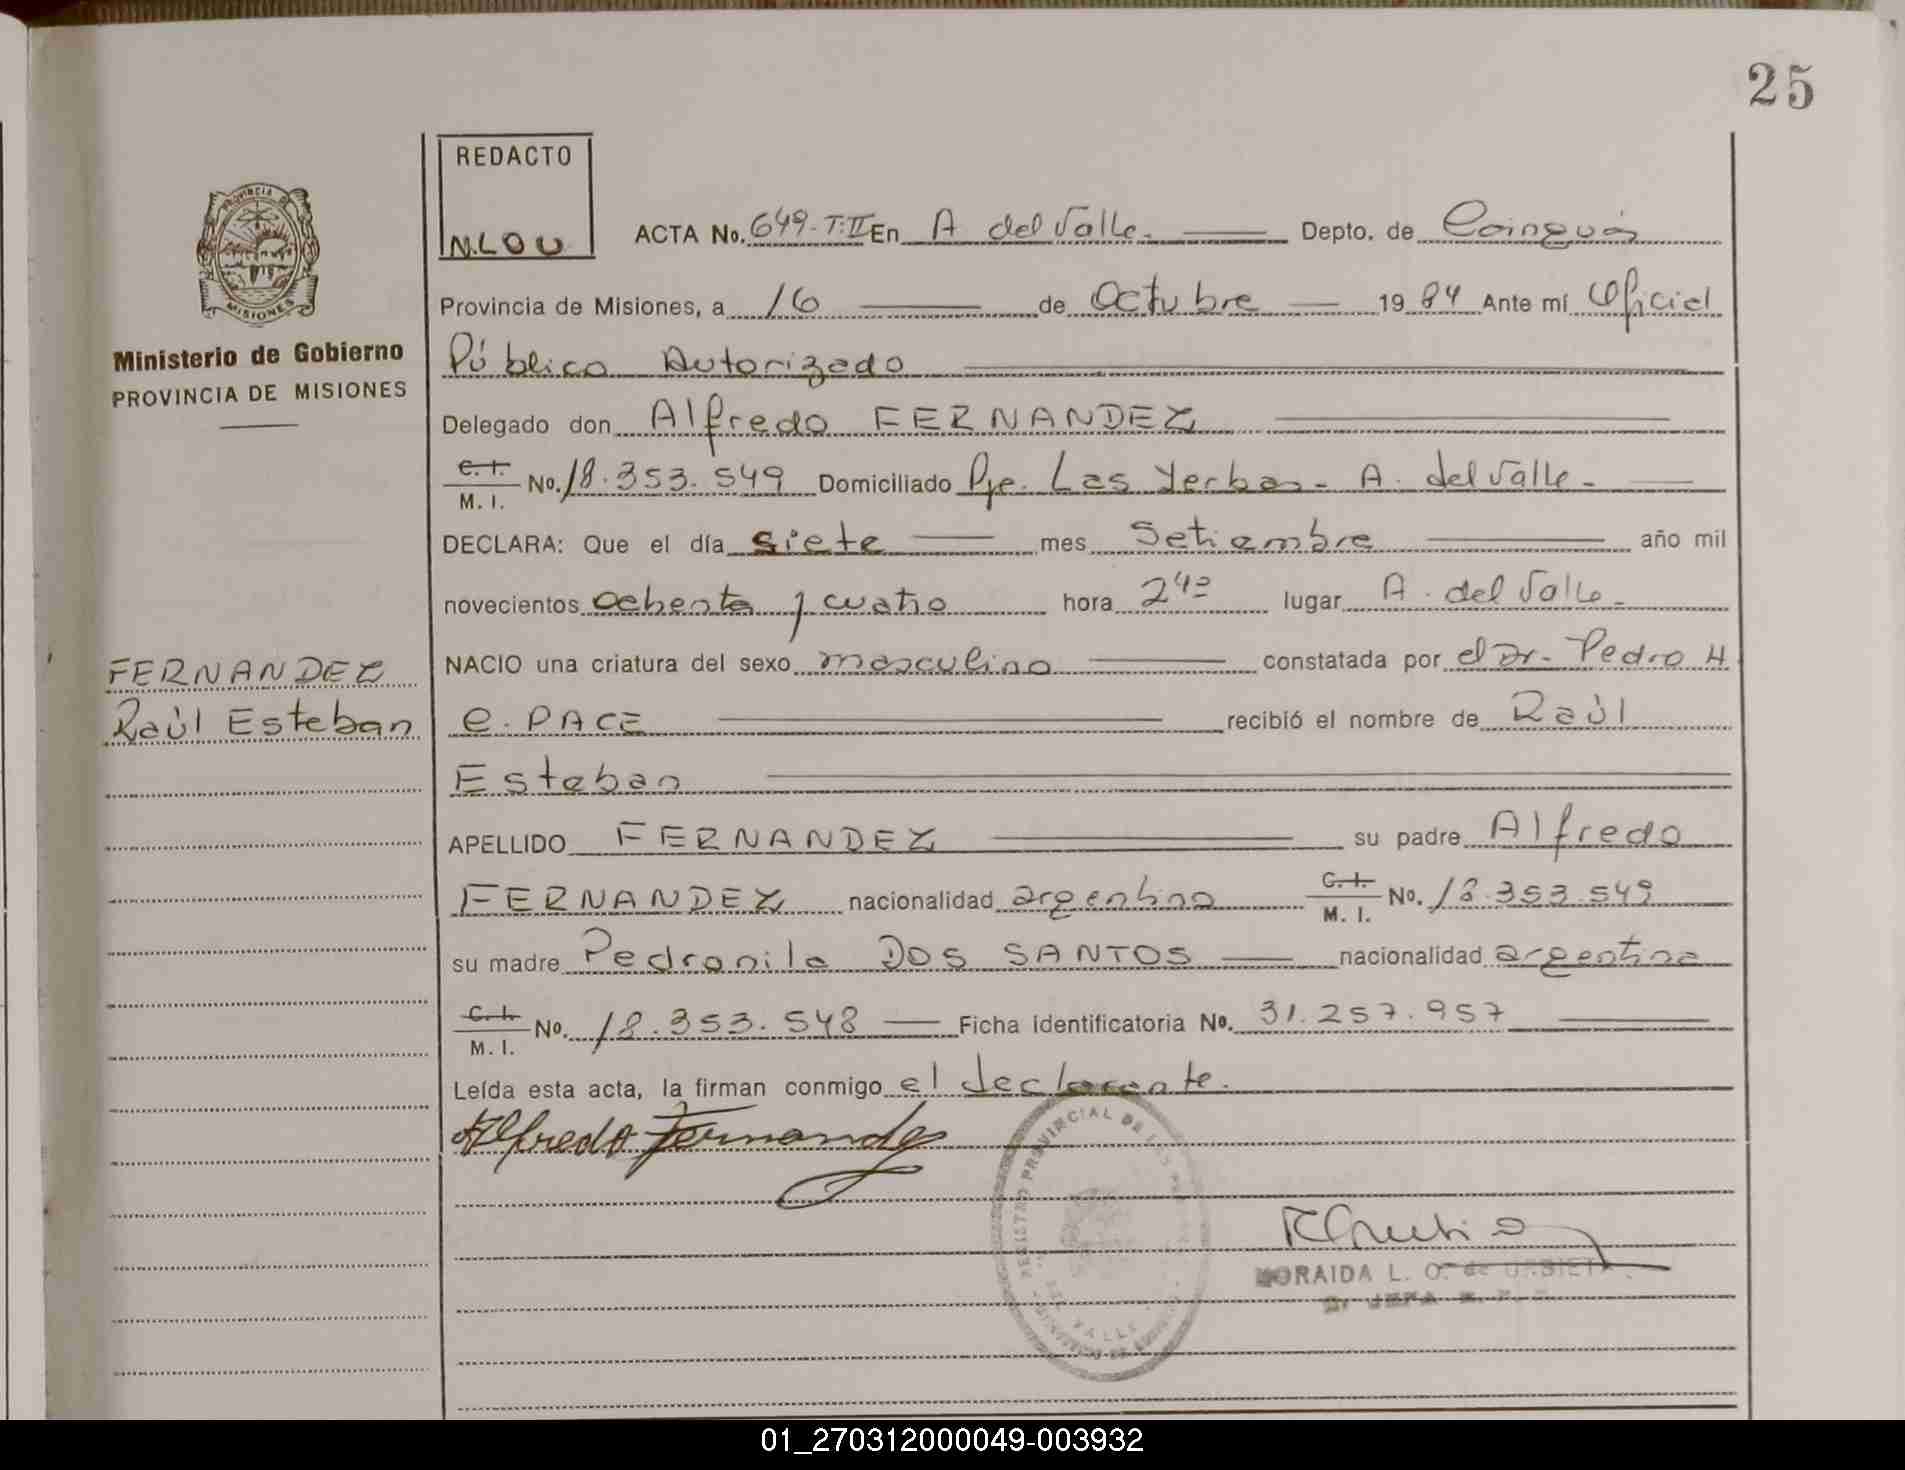 25
REDACTO
N.L.O.U
PROVINCIA DE
MISIONES
Ministerio de Gobierno
PROVINCIA DE MISIONES
FERNANDEZ
Raùl Esteban
ACTA No. 649-T:II En A del Valle.- Depto. de Cainguás
Provincia de Misiones, a 16 de Octubre 1984 Ante mí Oficial
Público Autorizado
Delegado don Alfredo FERNANDEZ
C. I. / M. I. No. 18.353.549 Domiciliado Pje. Las Yerbas- A. del Valle-
DECLARA: Que el día siete mes Setiembre año mil
novecientos ochenta y cuatro hora 24= lugar A. del Valle-
NACIO una criatura del sexo masculino constatada por el Dr. Pedro H
e. PACE recibió el nombre de Raùl
Esteban
APELLIDO FERNANDEZ su padre Alfredo
FERNANDEZ nacionalidad argentina C. I. / M. I. No. 18.353.549
su madre Pedronila DOS SANTOS nacionalidad argentina
C. I. / M. I. No. 18.353.548 Ficha identificatoria No. 31.257.957
Leída esta acta, la firman conmigo el declarante.
Alfredo Fernandez
REGISTRO PROVINCIAL DE LAS
VALLE
NORAIDA L. O. de URBIETA
01_270312000049-003932